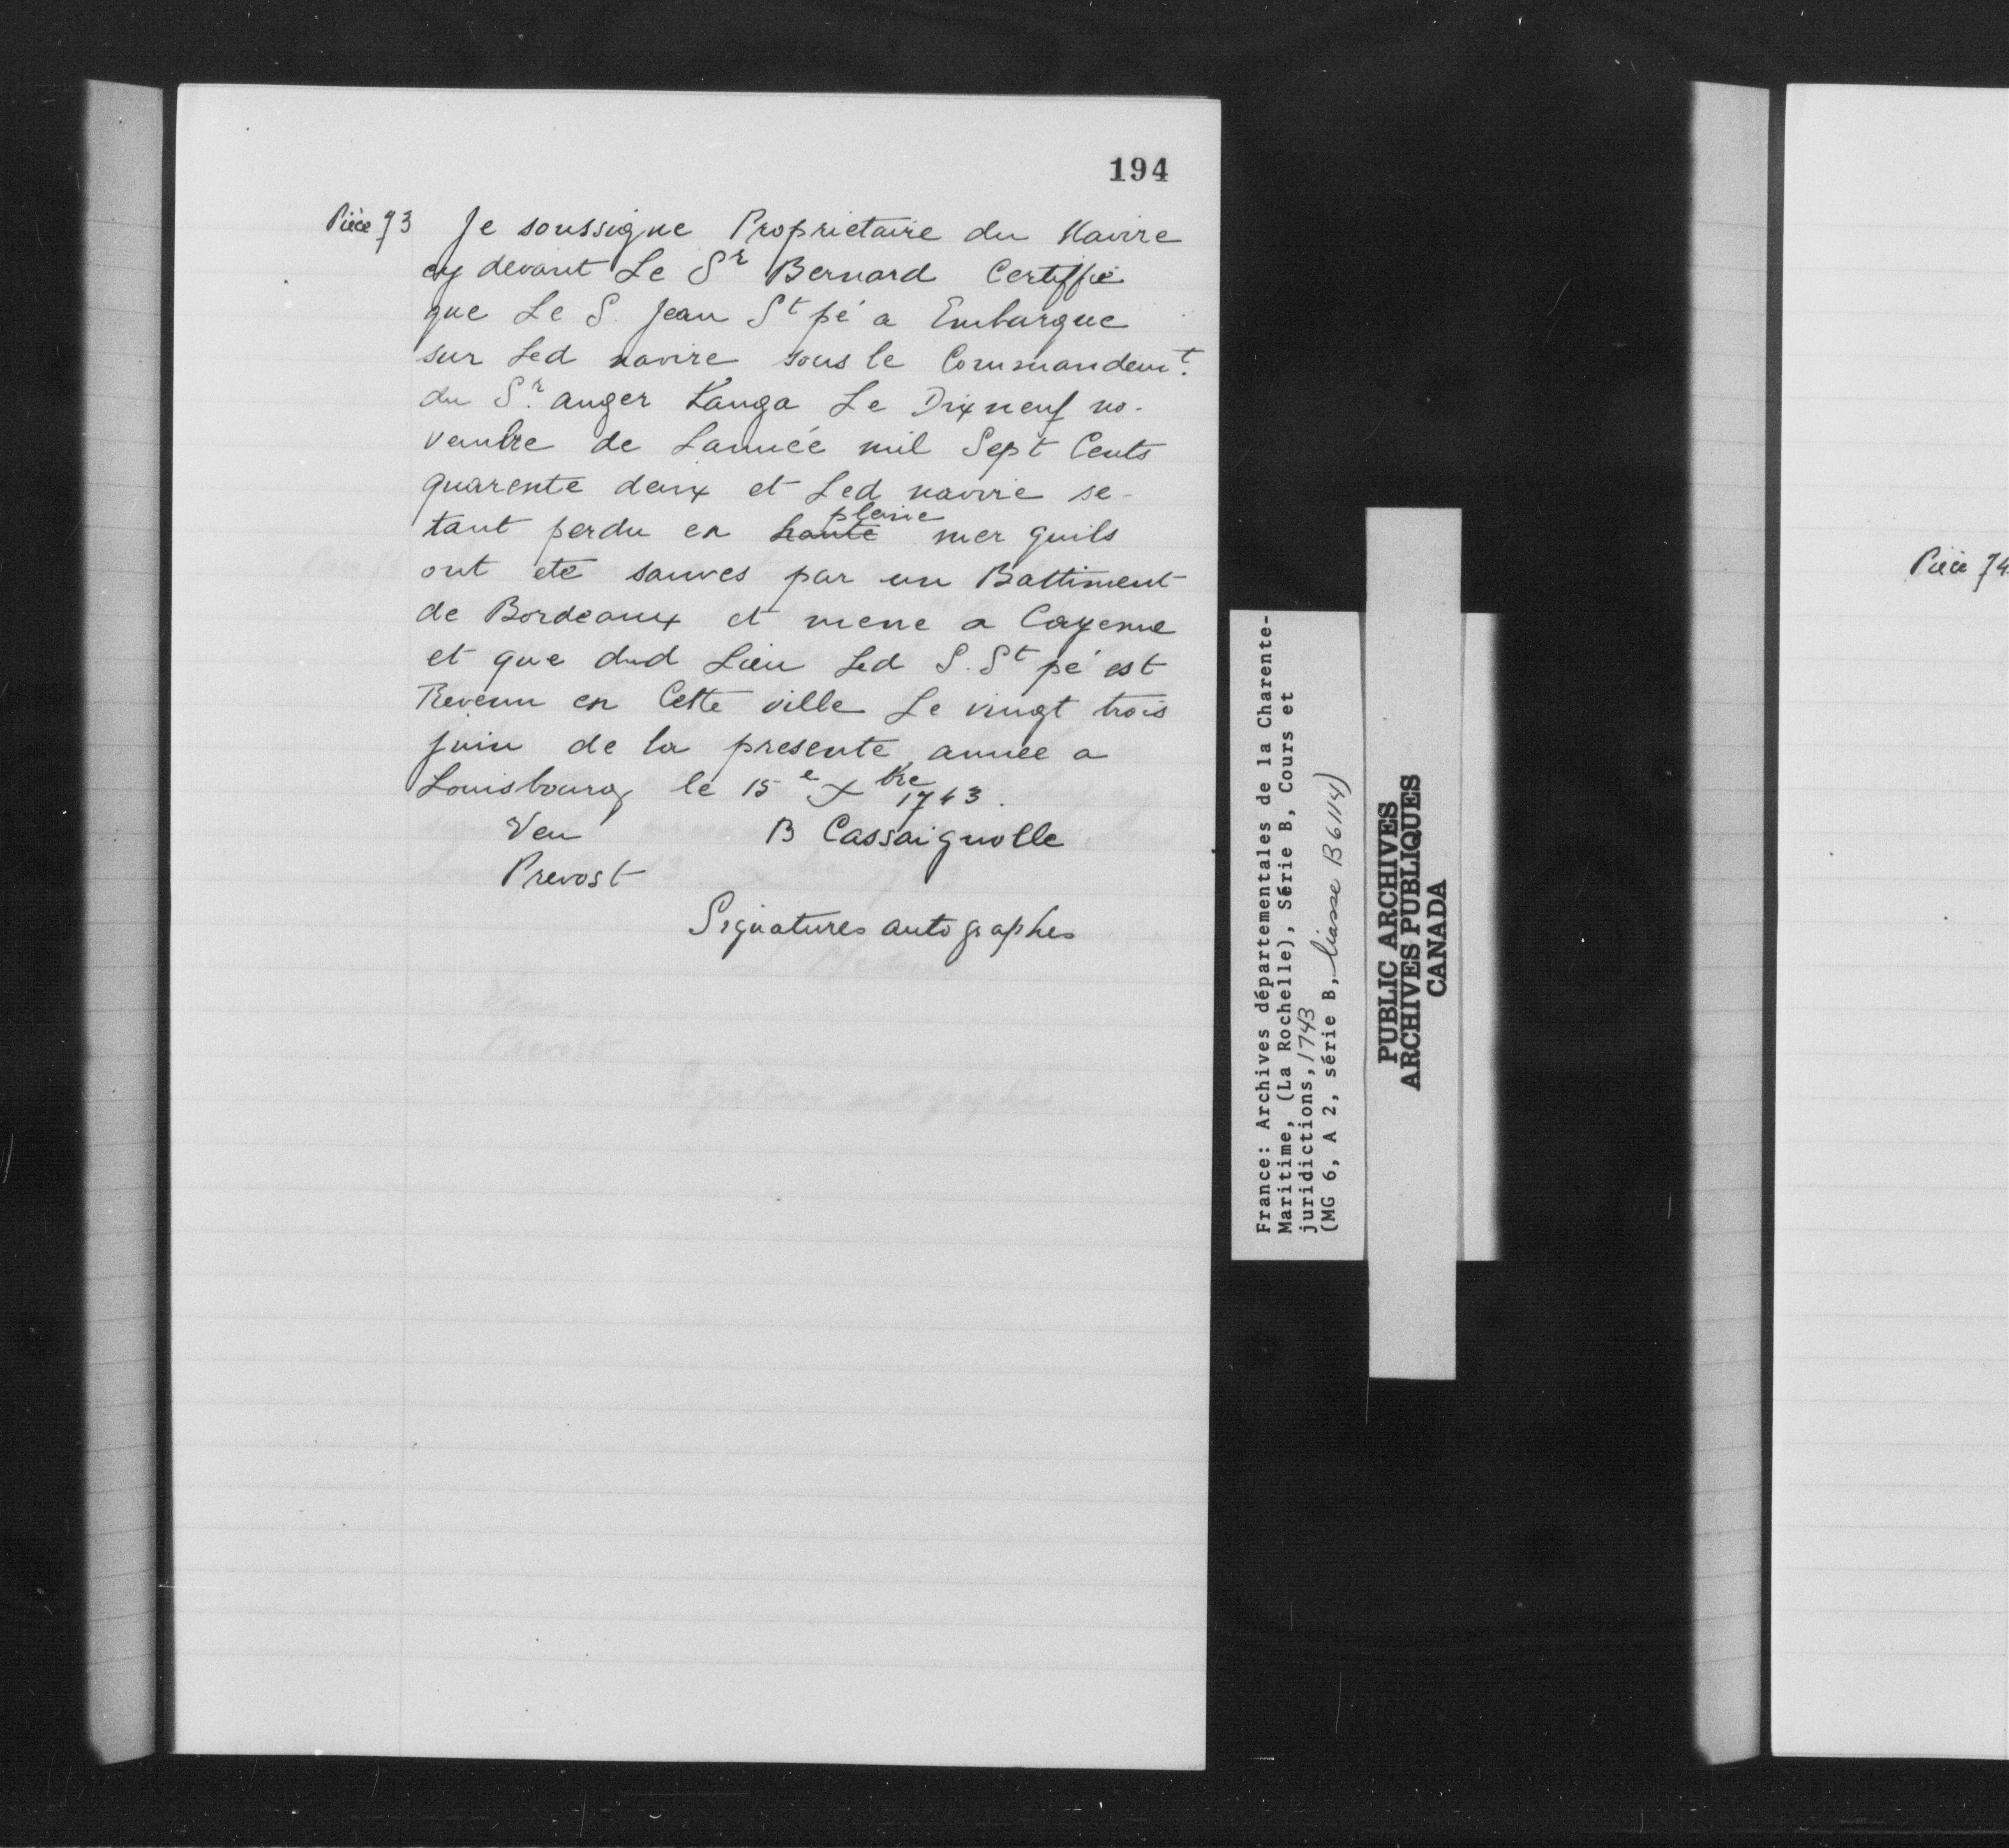 194
Pièce 73 Je soussigne Proprietaire du Navire
cy devant Le Sr Bernard Certiffie
que Le S. Jean St pé a Embarque
sur Led navire sous le Commandemt.
du Sr. anger Kanga Le Dix neuf no-
vembre de Lannéé mil Sept Cents
quarente deux et Led navire se-
tant perdu en haute pleine mer quils
ont ete sauves par un Battiment
de Bordeaux et mene a Cayenne
et que dud Lieu Led S. St pé est
Revenu en Cette ville Le vingt trois
juin de la presente année a
Louisbourg le 15e Xbre 1743.
Veu B Cassaignolle
Prevost
Signatures autographes
France: Archives départementales de la Charente-
Maritime, (La Rochelle), Série B, Cours et
juridictions, 1743
(MG 6, A 2, série B, liasse B 6114)
PUBLIC ARCHIVES
ARCHIVES PUBLIQUES
CANADA
Pièce 74